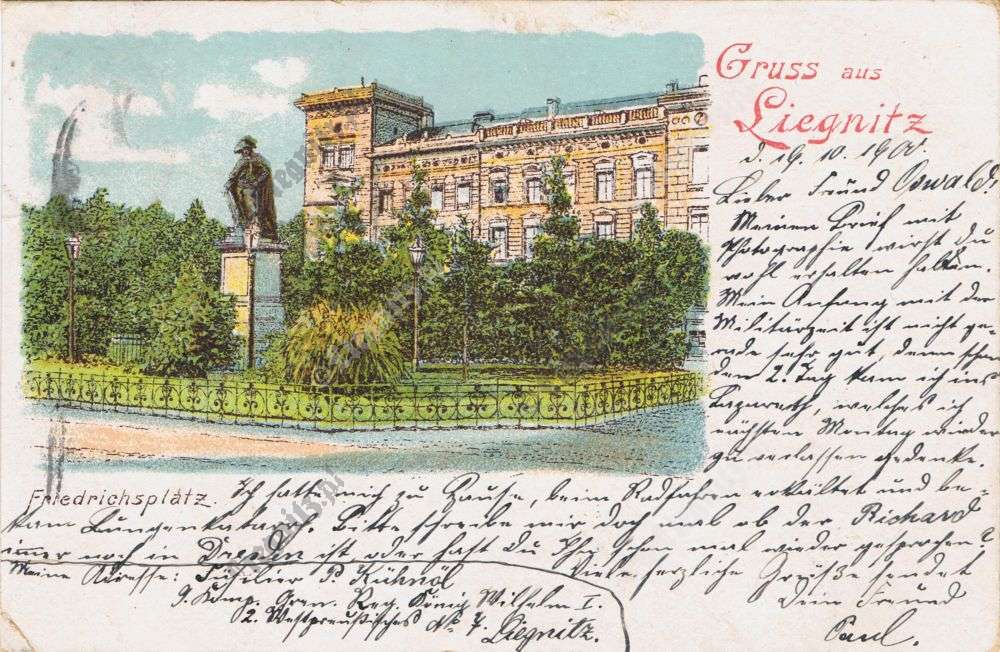 Gruss aus
Liegnitz
d. 19. 10. 1900.
Lieber Freund Oswald!
Meinen Brief mit
Photographie wirst du
wohl erhalten haben.
Mein Anfang mit der
Militärzeit ist nicht ge-
rade sehr gut, denn schon
den 2. Tag kam ich ins
Lazareth, welches ich
nächsten Montag wieder
zu verlassen gedenke.
Friedrichsplatz.
Ich hatte mich zu Hause, beim Radfahren erkältet und be-
kam Lungenkatarrh. Bitte schreibe mir doch mal ob der Richard
immer noch in Dresden ist oder hast du Ihn schon mal wieder gesprochen?
Viele herzliche Grüße sendet
Dein Freund
Paul.
Meine Adresse: Füsilier P. Kühnöl
9. Komp. Gren. Reg. König Wilhelm I.
2. Westpreußisches No. 7. Liegnitz.